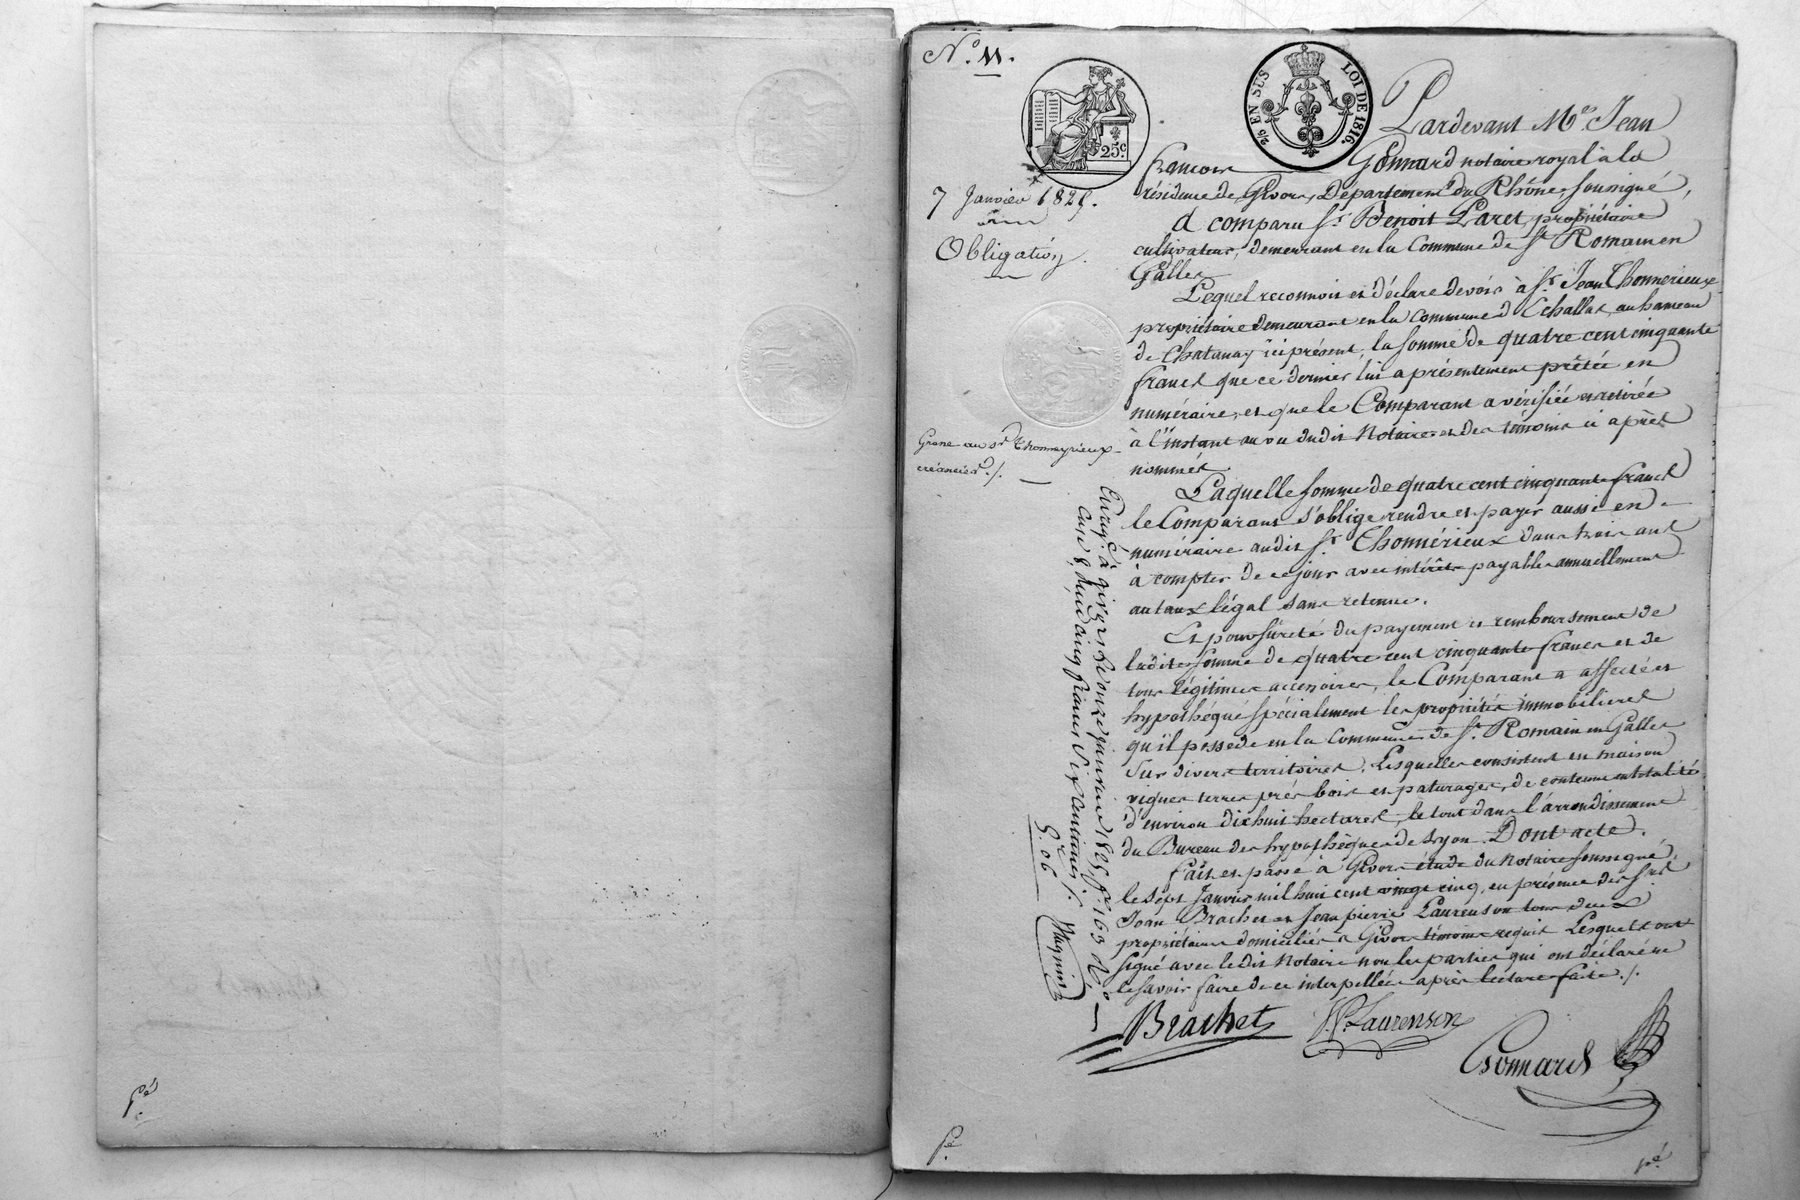 N.° 11.
25c
2/5 EN SUS LOI DE 1816.
7 Janvier 1825.
Obligation
Grosse au Sr. Thonnerieux
créancier./.
Pardevant Me. Jean
françois Gonnard notaire royal à la
résidence de Givors, Département du Rhône, soussigné,
a comparu Sr. Benoit Paret, propriétaire
cultivateur, demeurant en la Commune de St. Romain en
Galles
Lequel reconnoit et déclare devoir à Sr. Jean Thonnerieux
propriétaire demeurant en la Commune d'Echallas, au hameau
de Chatanay ici présent, la somme de quatre cent cinquante
francs que ce dernier lui a présentement prêtée en
numéraire, et que le Comparant a vérifiée et retirée
à l'instant au vu dudit Notaire et des témoins ci après
nommés.
Laquelle somme de quatre cent cinquante francs
le Comparant s'oblige rendre et payer aussi en
numéraire audit Sr. Thonnérieux dans trois ans
à compter de ce jour avec intérêts payables annuellement
au taux légal sans retenue.
Et pour sûreté du payement et remboursement de
ladite somme de quatre cent cinquante francs et de
tous légitimes accessoires, le Comparant a affecté et
hypothéqué spécialement les propriétés immobilieres
qu'il possède en la Commune de St. Romain en Galles
sur divers territoires. Lesquelles consistent en maison
vignes terres prés bois et paturages, de contenue en totalité
d'environ dix huit hectares, le tout dans l'arrondissement
du Bureau des hypothèques de Lyon. Dont acte.
Fait et passé à Givors étude du Notaire soussigné,
le sept Janvier mil huit cent vingt cinq, en présence des Srs.
Jean Brachet et Jean pierre Laurenson tous deux
propriétaires domiciliés à Givors témoins requis Lesquels ont
signé avec ledit Notaire non les parties qui ont déclaré ne
le savoir faire de ce interpellées après lecture faite./.
Enreg. à Givors le onze janvier 1825 f.° 163 V.°
Case 8, Reçu cinq francs six centimes./.
5.06
Brachet
J.P. Laurenson
Gonnard